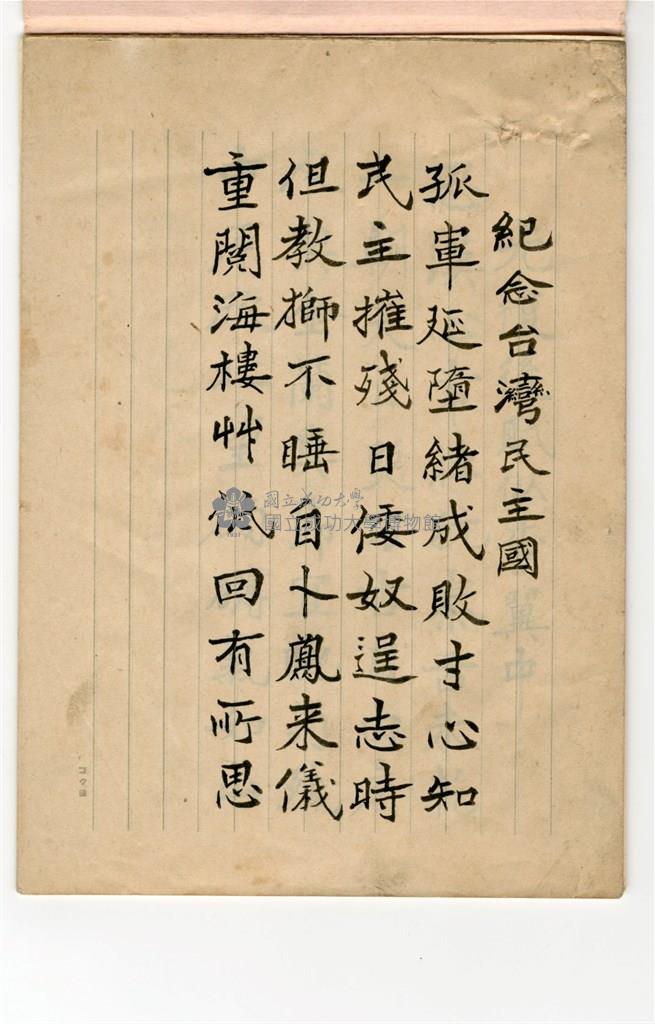 紀念台灣民主國
孤軍延墮緒成敗寸心知
民主摧殘日倭奴逞志時
但教獅不睡自卜鳳来儀
重閱海樓艸徴回有所思
國立成功大學
國立成功大學博物館
1931
コクヨ